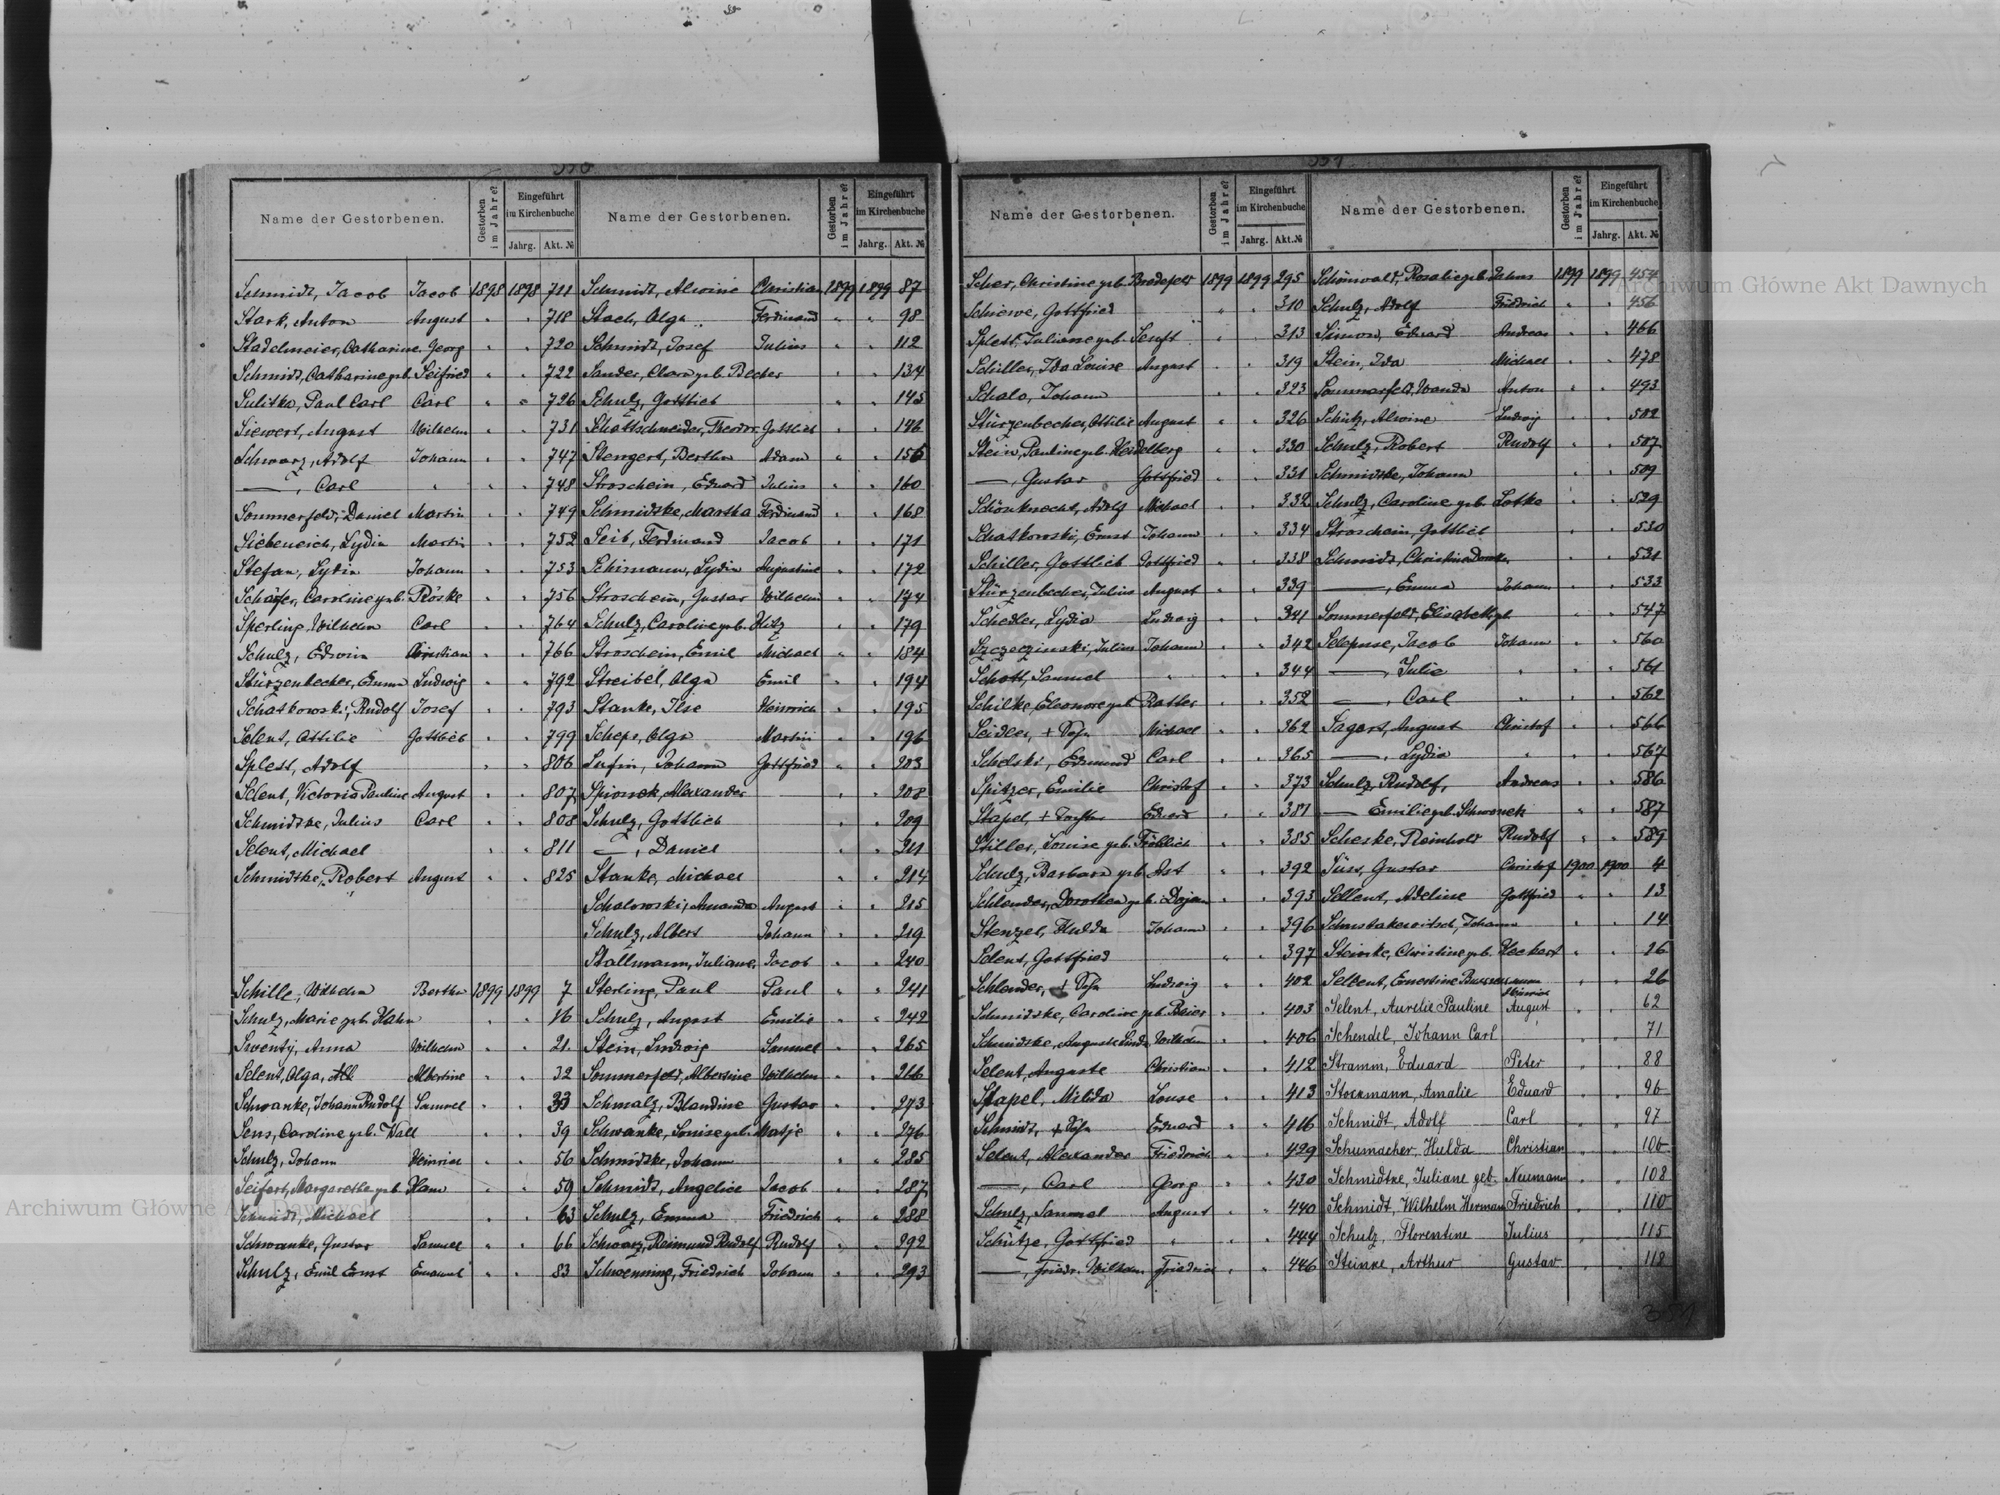 350
Name der Gestorbenen. Gestorben im Jahre? Eingeführt im Kirchenbuche Jahrg. Akt. №
Schmidt, Jacob Jacob 1898 1898 711
Stark, Anton August " " 718
Stadelmeier, Catharine Georg " " 720
Schmidt, Catharine geb. Seifried " " 722
Sulitka, Paul Carl Carl " " 726
Siewert, August Wilhelm " " 731
Schwarz, Adolf Johann " " 747
—, Carl " " " 748
Sommerfeld, Daniel Martin " " 749
Siebeneich, Lydia Martin " " 752
Stefan, Lydia Johann " " 753
Schäfer, Caroline geb. Röske " " 756
Sperling, Wilhelm Carl " " 764
Schulz, Edwin Christian " " 766
Stürzenbecher, Emma Ludwig " " 792
Schatkowski, Rudolf Josef " " 793
Selent, Ottilie Gottlieb " " 799
Splett, Adolf " " 806
Selent, Victoria Pauline August " " 807
Schmidtke, Julius Carl " " 808
Selent, Michael " " 811
Schmidtke, Robert August " " 825
Schille, Wilhelm Bertha 1899 1899 7
Schulz, Marie geb. Hahn " " 16
Swenty, Anna Wilhelm " " 21
Selent, Olga, Albertine " " 32
Schwanke, Johann Rudolf Samuel " " 33
Sens, Caroline geb. Wall " " 39
Schulz, Johann Heinrich " " 56
Seifert, Margarethe geb. Hann " " 59
Schmidt, Michael " " 63
Schwanke, Gustav Samuel " " 66
Schulz, Emil Ernst Emanuel " " 83
Name der Gestorbenen. Gestorben im Jahre? Eingeführt im Kirchenbuche Jahrg. Akt. №
Schmidt, Alwine Christian 1899 1899 87
Stach, Olga Ferdinand " " 98
Schmidt, Josef Julius " " 112
Sander, Clara geb. Becker " " 134
Schulz, Gottlieb " " 145
Schattschneider, Theodor Gottlieb " " 146
Stengert, Bertha Adam " " 156
Stroschein, Eduard Julius " " 160
Schmidtke, Martha Ferdinand " " 168
Seib, Ferdinand Jacob " " 171
Schimann, Lydia Augustine " " 172
Stroschein, Gustav Wilhelm " " 174
Schulz, Caroline geb. Hitz " " 179
Stroschein, Emil Michael " " 184
Streibel, Olga Emil " " 194
Stanke, Ilse Heinrich " " 195
Scheps, Olga Martin " " 196
Johann Gottfried " " 203
Spionek, Alexander " " 208
Schulz, Gottlieb " " 209
—, Daniel " " 211
Stanke, Michael " " 214
Schalowski, Amanda August " " 215
Schulz, Albert Johann " " 219
Stallmann, Juliane Jacob " " 240
Sterling, Paul Paul " " 241
Schulz, August Emilie " " 242
Stein, Ludwig Samuel " " 265
Sommerfeld, Albertine Wilhelm " " 266
Schmalz, Blandine Gustav " " 273
Schwanke, Louise geb. Matje " " 276
Schmidtke, Johann " " 285
Schmidt, Angelica Jacob " " 287
Schulz, Emma Friedrich " " 288
Schwarz, Reimund Rudolf Rudolf " " 292
Schwenning, Friedrich Johann " " 293
351
Name der Gestorbenen. Gestorben im Jahre? Eingeführt im Kirchenbuche Jahrg. Akt. №
Scher, Christine geb. Bredefeld 1899 1899 295
Schiewe, Gottfried " " 310
Splett, Juliane geb. Senft " " 313
Schiller, Ida Louise August " " 319
Schalo, Johann " " 323
Stürzenbecher, Ottilie August " " 326
Stein, Pauline geb. Heidelberg " " 330
—, Gustav Gottfried " " 331
Schönknecht, Adolf Michael " " 332
Schatkowski, Ernst Johann " " 334
Schiller, Gottlieb Gottfried " " 338
Stürzenbecher, Julius August " " 339
Schedler, Lydia Ludwig " " 341
Szczeczinski, Julius Johann " " 342
Schott, Samuel " " " 344
Schilke, Eleonore geb. Ratter " " 352
Seidler, + Sohn Michael " " 362
Schelski, Edmund Carl " " 365
Spitzer, Emilie Christof " " 373
Stapel, + Tochter Eduard " " 381
Stiller, Louise geb. Fröhlich " " 385
Schulz, Barbara geb. Ast " " 392
Schlender, Dorothea geb. Dojan " " 393
Stenzel, Hulda Johann " " 396
Selent, Gottfried " " 397
Schlender, + Sohn Ludwig " " 402
Schmidtke, Caroline geb. Beier " " 403
Schmidtke, Auguste Linda Wilhelm " " 406
Selent, Auguste Christian " " 412
Stapel, Milida Louse " " 413
Schmidt, + Sohn Eduard " " 416
Selent, Alexander Friedrich " " 429
—, Carl Georg " " 430
Schulz, Samuel August " " 440
Schütze, Gottfried " " " 444
—, Friedr. Wilhelm Friedrich " " 446
Name der Gestorbenen. Gestorben im Jahre? Eingeführt im Kirchenbuche Jahrg. Akt. №
Schönwald, Rosalie geb. 1899 1899 454
Schulz, Adolf Friedrich " " 456
Simon, Eduard Andreas " " 466
Stein, Ida Michael " " 478
Sommerfeld, Wanda Anton " " 493
Schütz, Alwine Ludwig " " 502
Schulz, Robert Rudolf " " 507
Schmidtke, Johann " " 509
Schulz, Caroline geb. Lotke " " 529
Stroschein, Gottlieb " " 530
Schmidt, Christine " " 531
—, Emma Johann " " 533
Sommerfeld, Elisabeth geb. " " 547
Jacob Johann " " 560
—, Julie " " " 561
—, Carl " " " 562
Sagert, August Christof " " 566
—, Lydia " " " 567
Schulz, Rudolf, Andreas " " 586
— Emilie geb. Schwenek " " 587
Scheske, Reinhold Rudolf " " 589
Süss, Gustav Christof 1900 1900 4
Sellent, Adeline Gottfried " " 13
Johann " " 14
Steinke, Christine geb. Heckert " " 16
Selent, Ernestine Heinrich " " 26
Selent, Aurelie Pauline August " " 62
Schendel, Johann Carl " " 71
Stramm, Eduard Peter " " 88
Stockmann, Amalie Eduard " " 96
Schmidt, Adolf Carl " " 97
Schumacher, Hulda Christian " " 105
Schmidtke, Juliane geb. Neumann " " 108
Schmidt, Wilhelm Herman Friedrich " " 110
Schulz, Florentine Julius " " 115
Steinke, Arthur Gustav " " 118
351
Archiwum Główne Akt Dawnych
Archiwum Główne Akt Dawnych